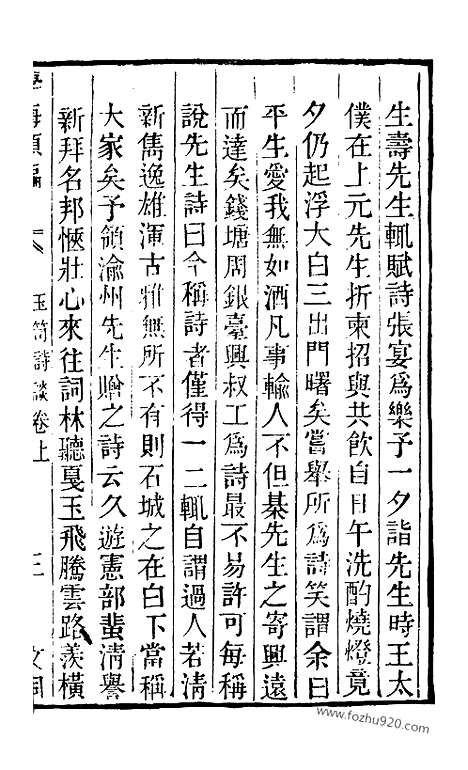 生壽先生輒賦詩張宴爲樂予一夕詣先生時王太
僕在上元先生折柬招與共飲自日午洗酌燒燈竟
夕仍起浮大白三出門曙矣嘗舉所爲詩笑謂余曰
平生愛我無如酒凡事輸人不但棊先生之寄興遠
而達矣錢塘周銀臺興叔工爲詩最不易許可每稱
說先生詩曰今稱詩者僅得一二輒自謂過人若清
新雋逸雄渾古雅無所不有則石城之在白下當稱
大家矣予領渝州先生贈之詩云久遊憲部蜚清譽
新拜名邦愜壯心來往詞林聽戛玉飛騰雲路羨橫
學海類編 玉笥詩談卷上 三
www.fozhu920.com